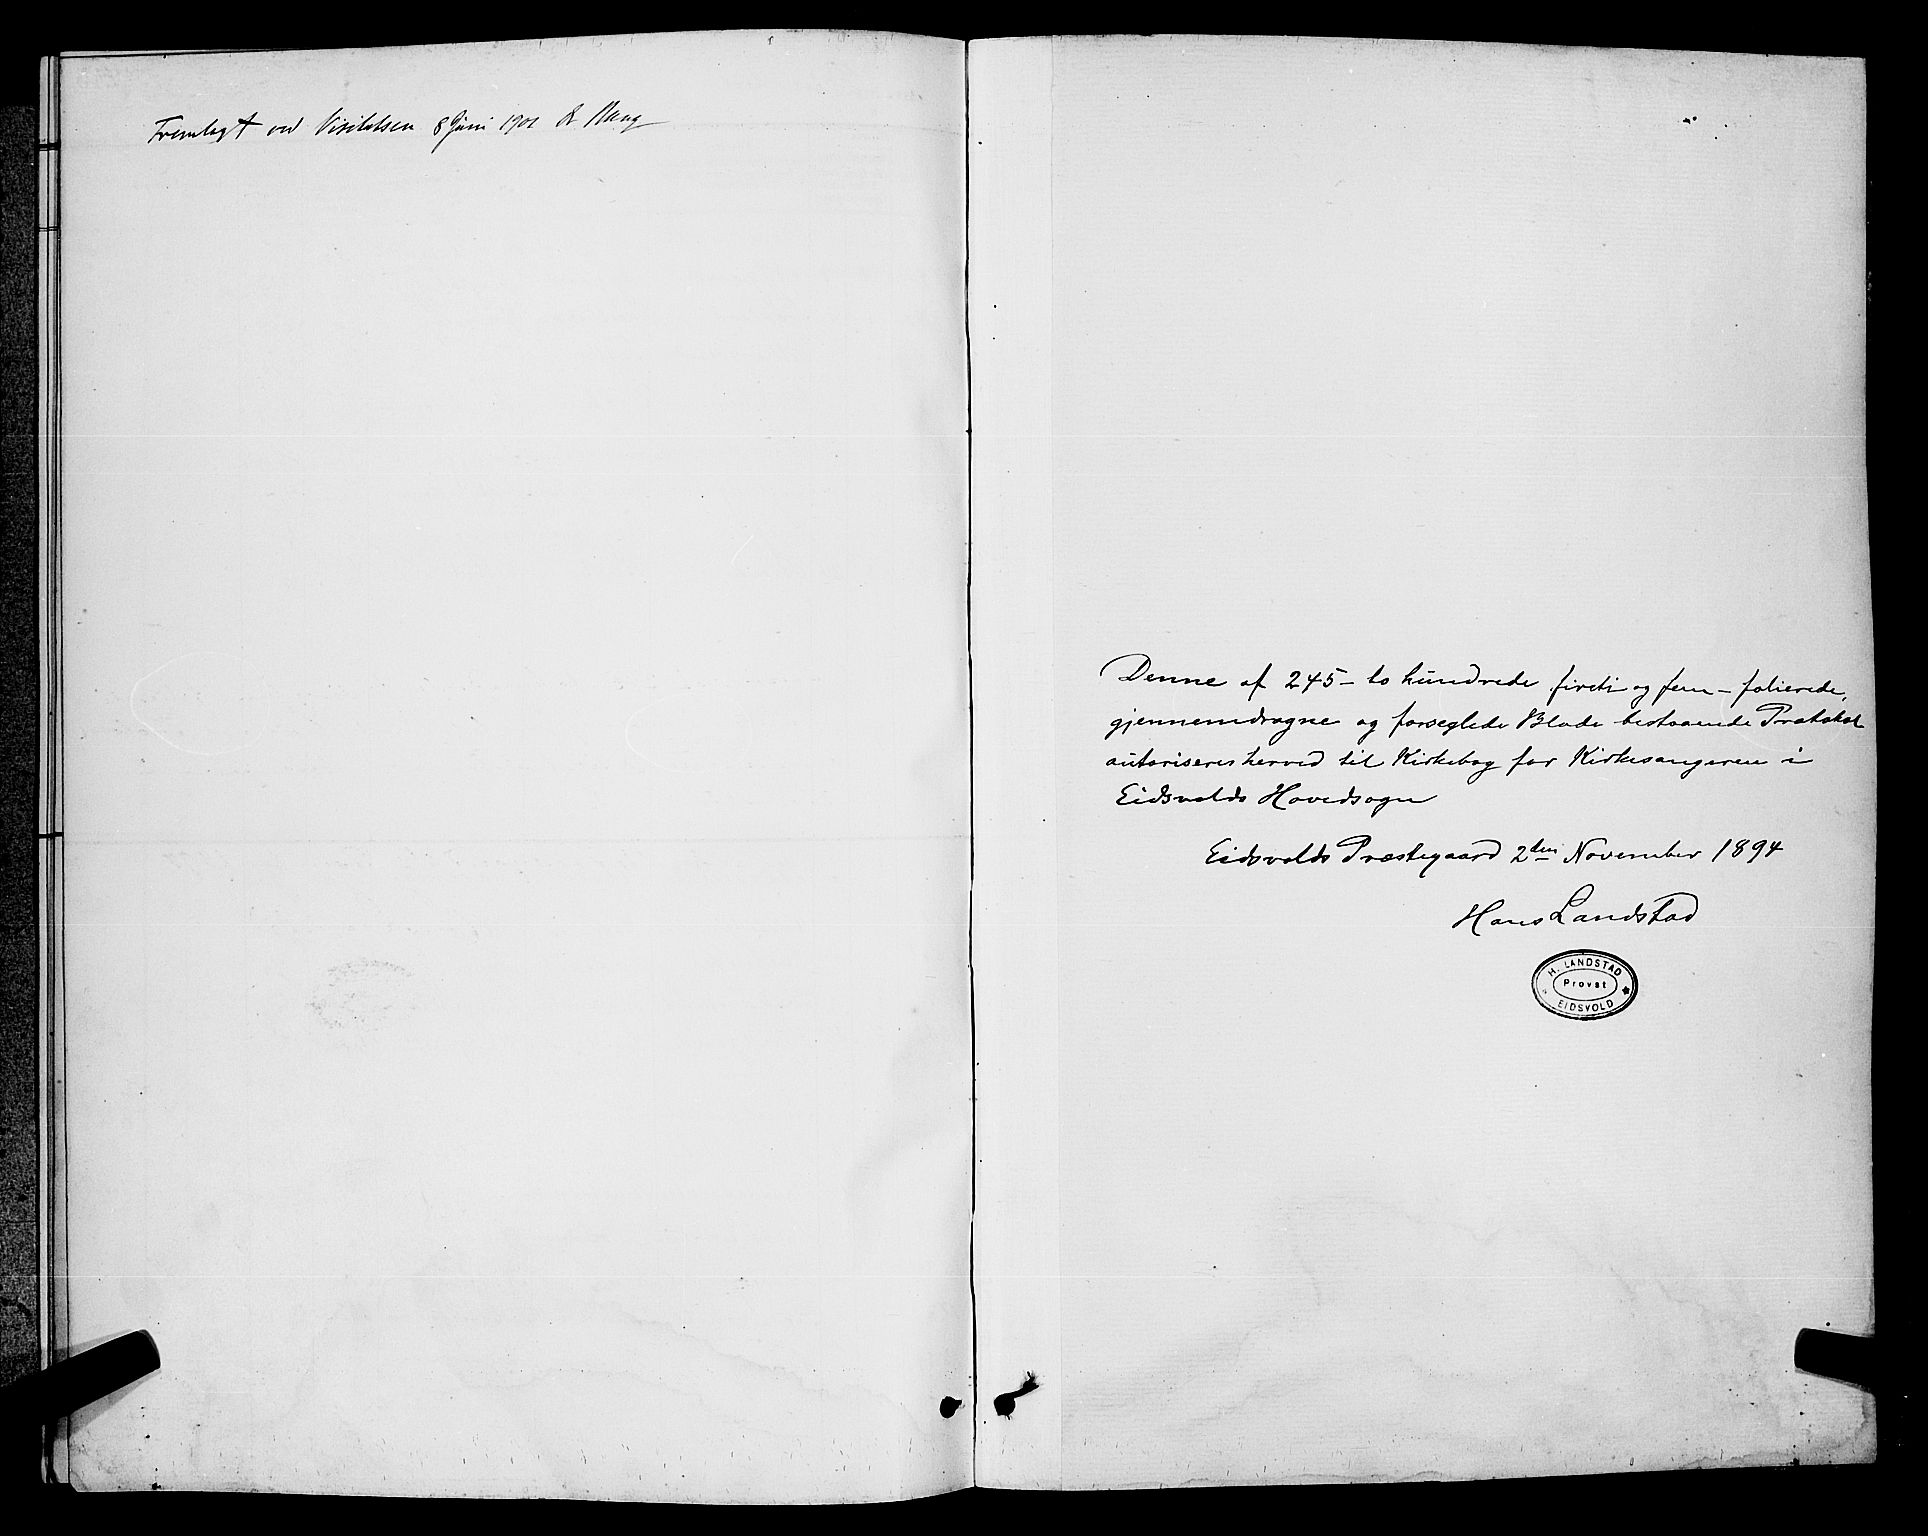 Fremlagt ved Visitatsen 8 Juni 1901
Denne af 245 - to hundrede firti og fem - folierede,
gjennemdragne og forseglede Blade bestaaende Protokol
autoriseres herved til Kirkebog for Kirkesangeren i
Eidsvolds Hovedsogn
Eidsvolds Præstegaard 2den November 1894
Hans Landstad
H. LANDSTAD
Provst
EIDSVOLD